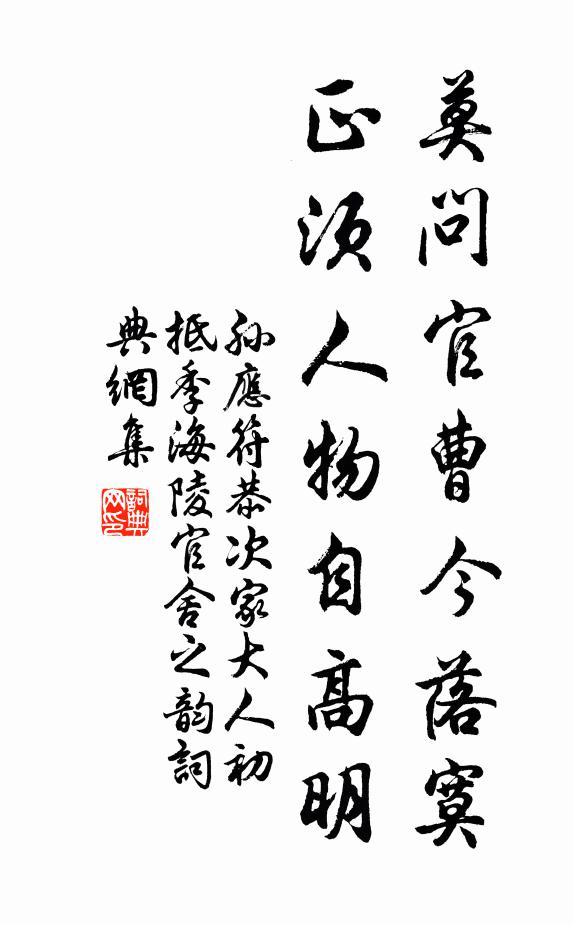 莫問官曹今落寞
正須人物自高明
孫應符恭次家大人初
抵季海陵官舍之韵詞
典網集
詞典网印